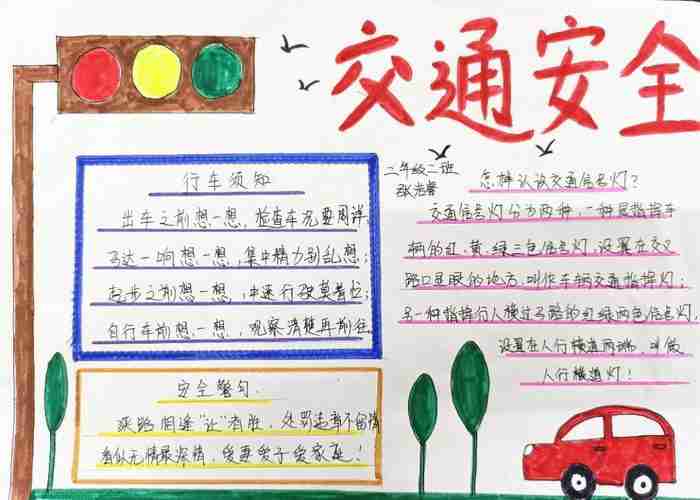 交通安全
二年级二班
行车须知
出车之前想一想，检查车况要周详；
马达一响想一想，集中精力别乱想；
起步之前想一想，中速行驶莫着忙；
自行车前想一想，观察清楚再前往。
安全警句
狭路相逢“让”者胜，处罚违章不留情
看似无情最深情，爱妻爱子爱家庭！
怎样认识交通信号灯？
交通信号灯分为两种，一种是指挥车
辆的红、黄、绿三色信号灯，设置在交叉
路口显眼的地方，叫作车辆交通指挥灯；
另一种指挥行人横过马路的红绿两色信号灯，
设置在人行横道两端，叫做
人行横道灯！